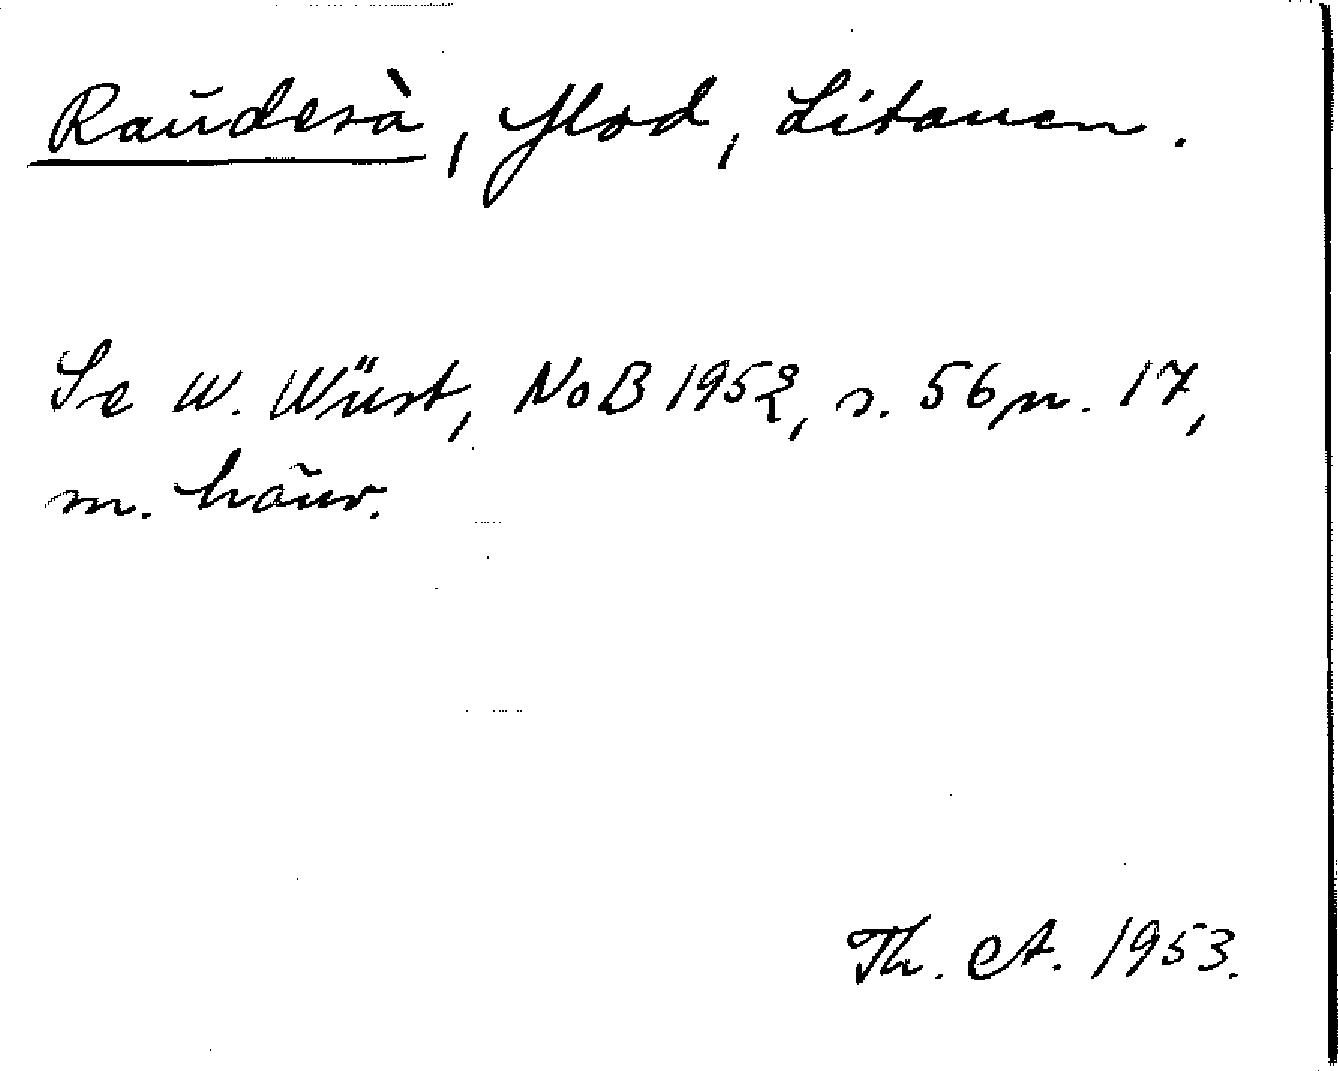 Raŭdesà, flod, Litauen.
Se W. Wüst, NoB 1952, s. 56 n. 17,
m. hänv.
Th. A. 1953.